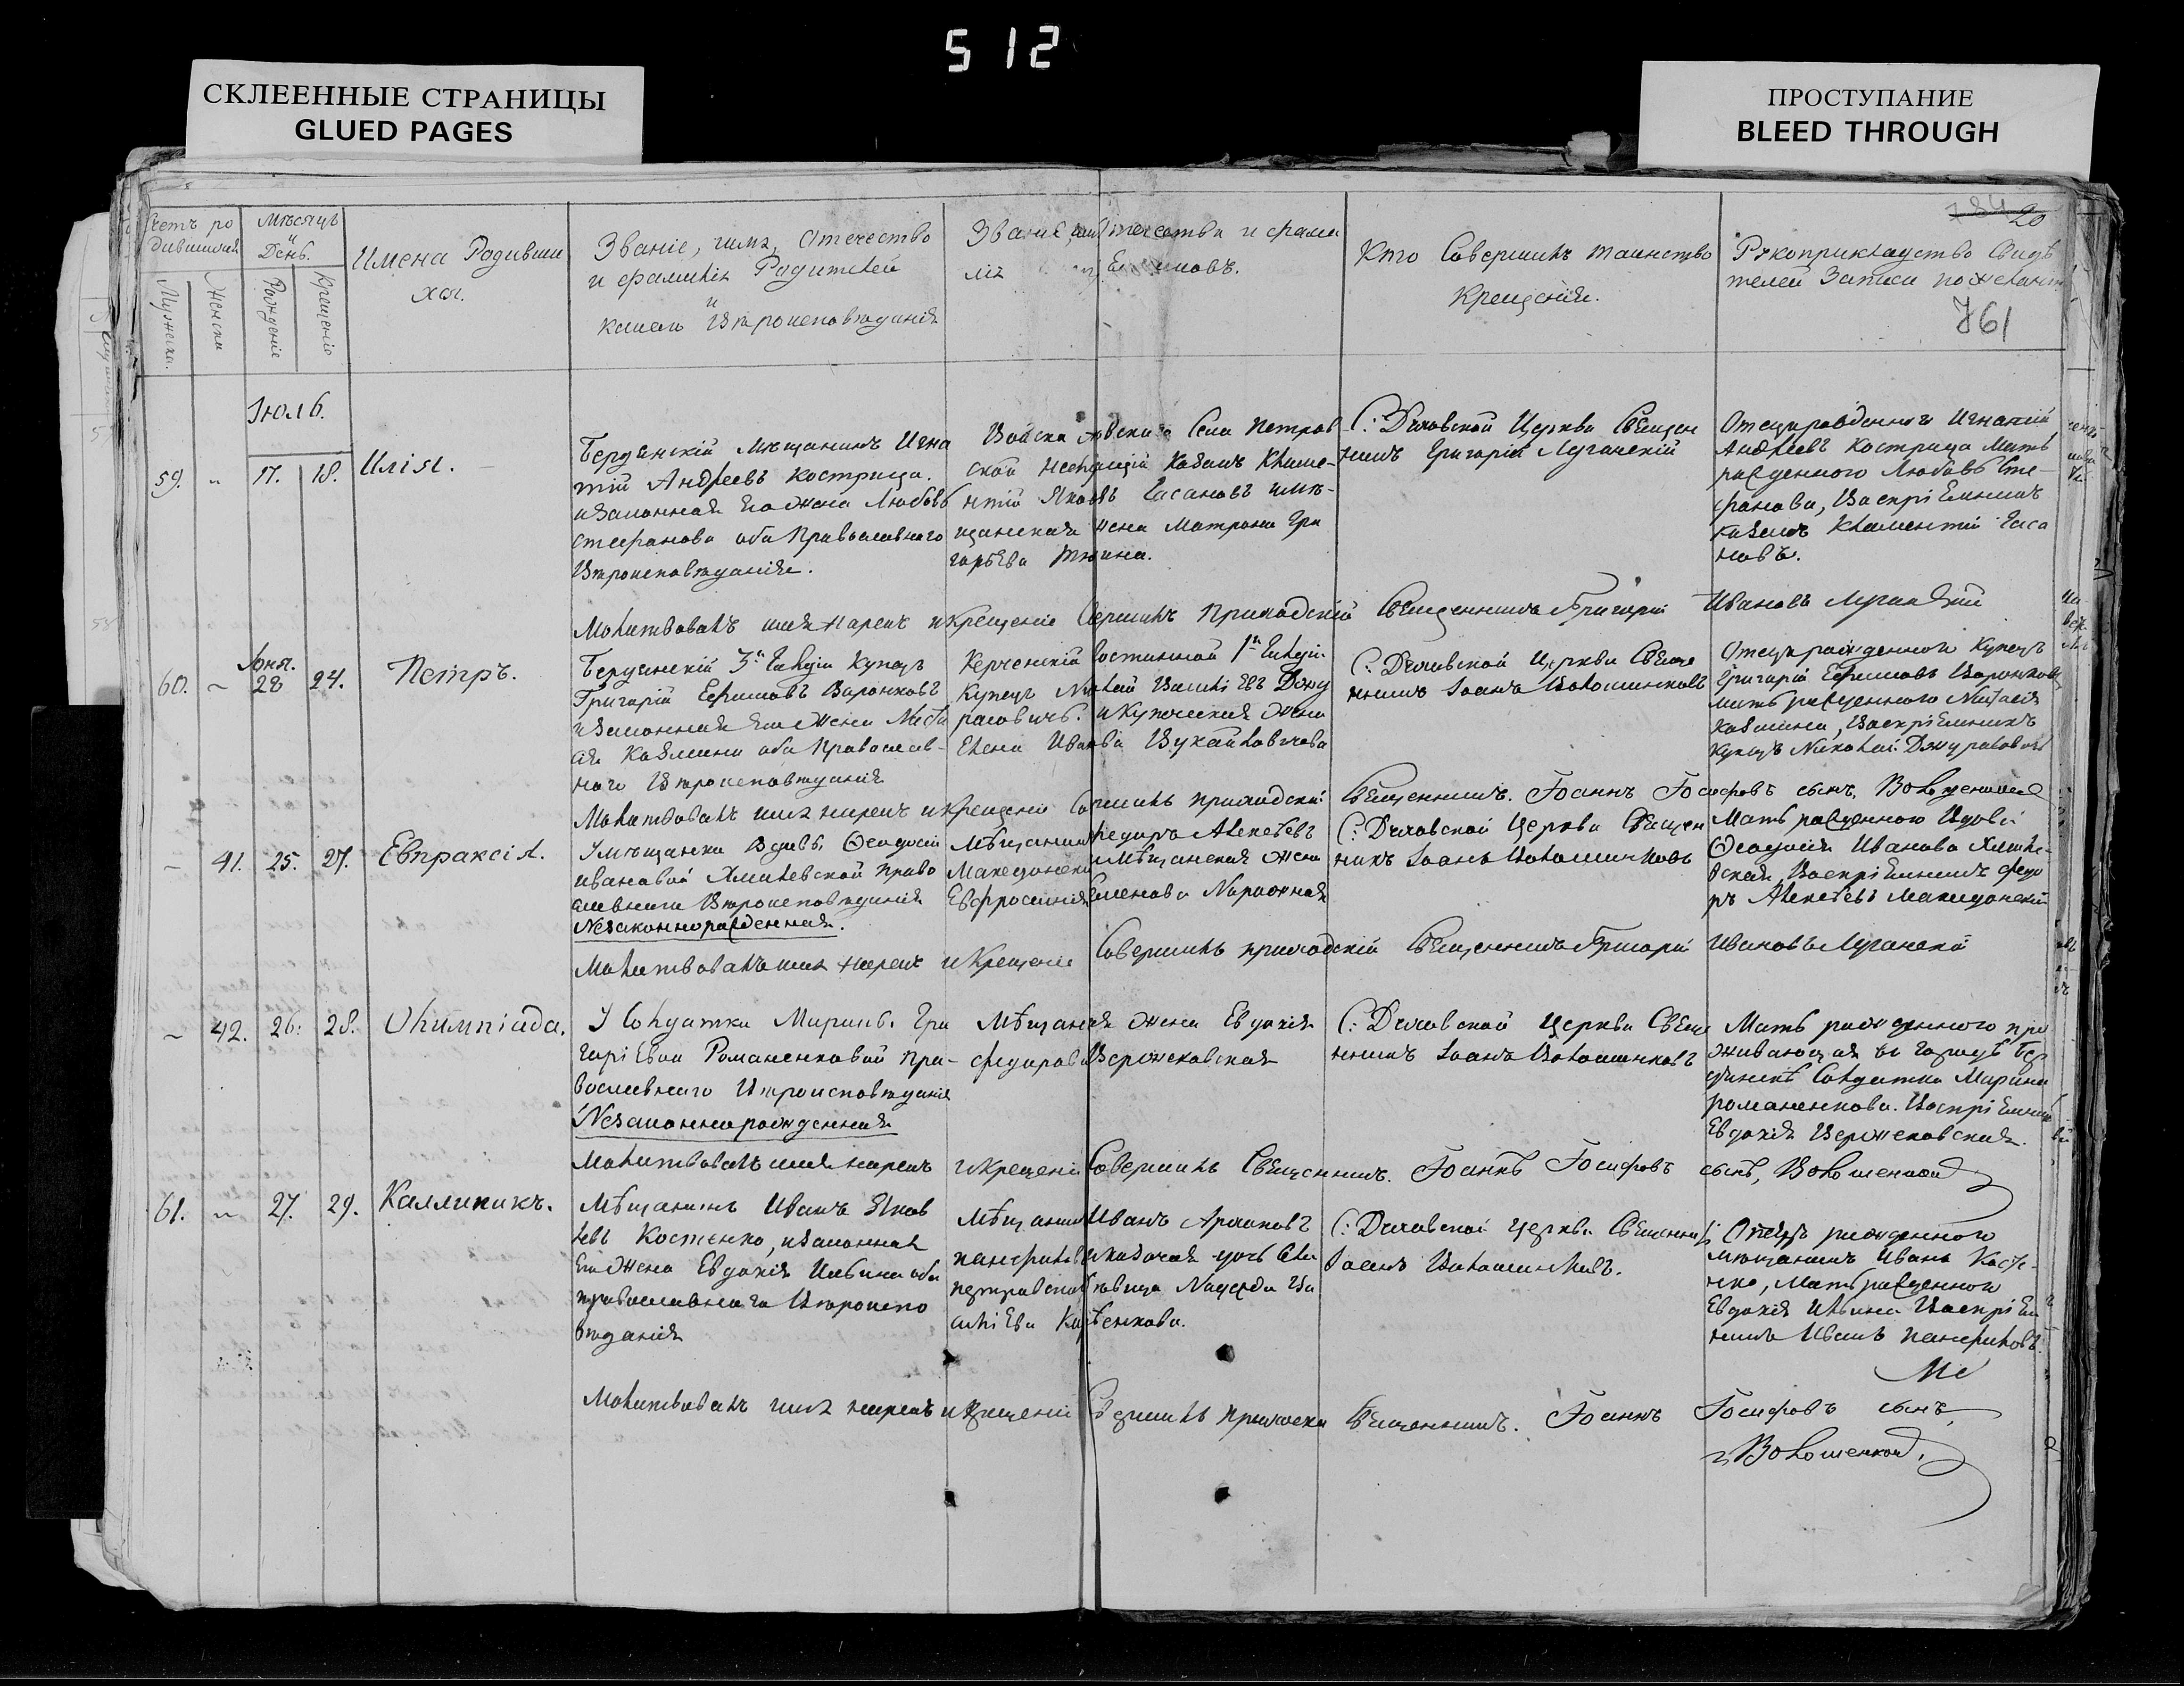 512
СКЛЕЕННЫЕ СТРАНИЦЫ
GLUED PAGES
ПРОСТУПАНИЕ
BLEED THROUGH
20
Счетъ ро
дившихся
Мужеска.
Женска
Мѣсяцъ
и
День.
Рожденіе
Крещеніе
Имена Родивши
хся.
Званіе, имя, Отечество
и фамилія Родителей
и
какого Вѣроисповѣданія
Званіе, отечества и фами
лія
Кто Совершилъ таинство
Крещенія.
Рукоприкладство Свидѣ
телей Записи по желанію
761
Іюль.
59. „ 17. 18. Илія.
Бердянскій Мѣщанинъ Игна
тій Андреевъ Кострица.
и законная Его жена Любовь
Стефанова оба Православнаго
Вѣроисповѣданія.
Войска Азовскаго Села Петров
ской Казакъ Климе-
нтій Яковъ Гасановъ и мѣ-
щанская жена Матрона Гри
горьева
С: Духовской Церкви Священ
никъ Григорій Луганскій
Отецъ рожденнаго Игнатій
Андреевъ Кострица Мать
рожденного Любовь Сте-
фанова, Воспріемникъ
казакъ Климентій Гаса
новъ.
Молитвовалъ имя нарекъ и крещеніе Совершилъ Приходскій Священникъ Григорій Ивановъ Луганскій
60. „ Іюня. 28 24. Петръ.
Бердянскій 3й Гильдіи Купецъ
Григорій Ефимовъ Воронковъ
и законная Его Жена Наста
сія Козмина оба Православ-
наго Вѣроисповѣданія
Керченскій Гостинной 1й Гильдіи
Купецъ Николай Васильевъ Джу
раловичъ. и Купеческая Жена
Елена Иванова Вукаловичова
С: Духовской Церкви Свяще
нникъ Іоаннъ Волошинковъ
Отецъ рожденного Купецъ
Григорій Ефимовъ Воронковъ
мать рожденного Настасія
Козмина, Воспріемникъ
Купецъ Николай Джураловичъ
Молитвовалъ имя нарекъ и Крещеніе Совершилъ приходскій Священникъ. Іоаннъ Іосифовъ сынъ, Волошенковъ
– 41. 25. 27. Евпраксія.
У мѣщанки Вдовы Ѳеодосіи
Ивановой Хмилевской Право
славнаго Вѣроисповѣданія
Незаконнорожденная.
Мѣщанинъ Федоръ Алексѣевъ
Македонскій и Мѣщанская Жена
Евфросинія Семенова Нарожная
С: Духовской Церкви Священ
никъ Іоаннъ Волошинковъ
Мать рожденного Вдова
Ѳеодосія Иванова Хмиле-
вская, Воспріемникъ Федо
ръ Алексѣевъ Македонскій
Молитвовалъ имя нарекъ и Крещеніе Совершилъ приходскій Священникъ Григорій Ивановъ Луганскій
– 42. 26. 28. Олимпіада.
У Солдатки Марины Гри
горіевой Романенковой Пра-
вославнаго Вѣроисповѣданія
Незаконнорожденная
Мѣщанская Жена Евдокія
Федорова
С: Духовской Церкви Свяще
нникъ Іоаннъ Волошинковъ
Мать рожденного про
живающая въ городѣ Бер
дянскѣ Солдатка Марина
романенкова. Воспріемница
Евдокія
Молитвовалъ имя нарекъ и крещеніе Совершилъ Священникъ. Іоаннъ Іосифовъ сынъ, Волошенковъ
61. „ 27. 29. Каллиникъ.
Мѣщанинъ Иванъ Яков
левъ Костенко, и законная
Его Жена Евдокія Ильина оба
православнаго Вѣроиспо
вѣданія
Мѣщанинъ Иванъ
Панфиловъ и казачая дочь
дѣвица Надежда Ва
силіева
С: Духовской Церкви Священникъ
Іоаннъ Волошинковъ.
Отецъ рожденного
мѣщанинъ Иванъ Косте-
нко, Мать рожденного
Евдокія Ильина Воспріем
никъ Иванъ Панфиловъ.
Молитвовалъ имя нарекъ и крещеніе Совершилъ Приходскій Священникъ. Іоаннъ Іосифовъ сынъ
Волошенковъ.